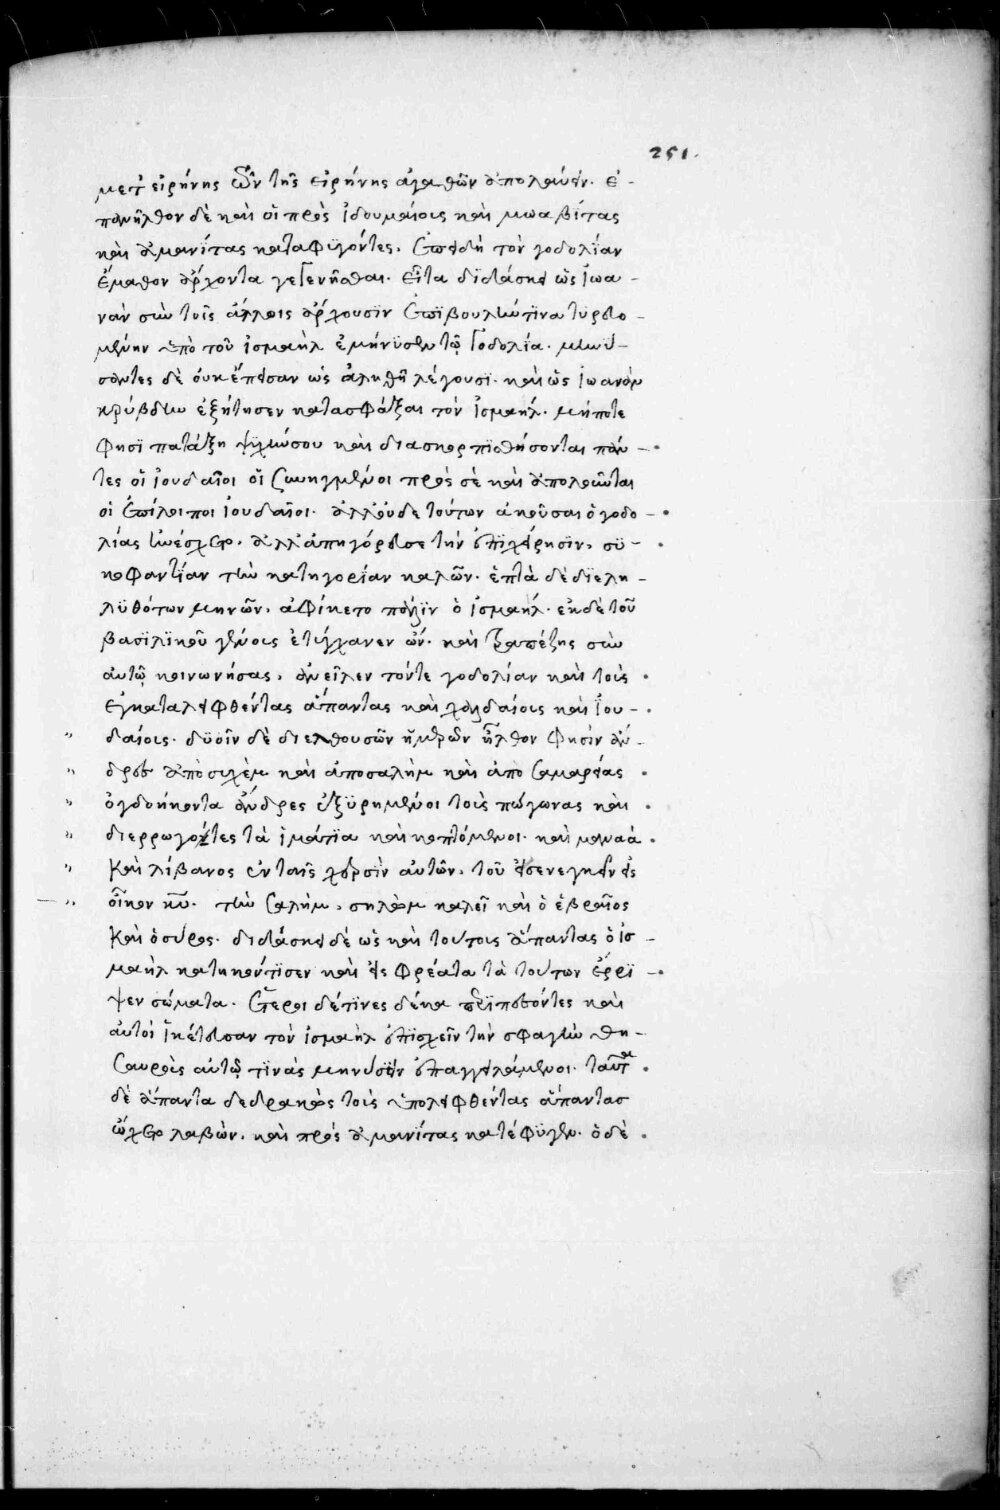 251.
μετ' εἰρήνης τῶν τῆς εἰρήνης ἀγαθῶν ἀπολαύειν. ἐ-
πανῆλθον δὲ καὶ οἱ πρὸς ἰδουμαίοις καὶ μωαβίτας
καὶ ἀμανίτας καταφυγόντες. ἐπειδὴ τὸν γοδολίαν
ἔμαθον ἄρχοντα γεγενῆσθαι. εἶτα διδάσκει ὡς ἰωα-
νὰν σὺν τοῖς ἄλλοις ἄρχουσϊν ἐπϊβουλὴν τϊνα τυρευο-
μένην ὑπὸ τοῦ ἰσμαὴλ ἐμήνϋσεν τῷ γοδολίᾳ.
δὲ οὐκ ἔπεισαν ὡς ἀληθῆ λέγουσϊ. καὶ ὡς ἰωανὰν
κρύβδην ἐξήτησεν κατασφάξαι τὸν ἰσμαήλ. μήποτε
φησϊ πατάξη ψϋχήν σου καὶ διασκορπϊσθήσονται πάν-
τες οἱ ἰουδαῖοι οἱ συνηγμένοι πρὸς σὲ καὶ ἀπολοῦνται
οἱ ἐπίλοιποι ἰουδαῖοι. ἀλλ' οὐδὲ τούτων ἀκοῦσαι ὁ γοδο-
λίας ἠνέσχετο. ἀλλ' ἀπηγόρευσε τὴν ἐπϊχείρησϊν, σϋ-
κοφαντίαν τὴν κατηγορίαν καλῶν. ἑπτὰ δὲ διελη-
λϋθότων μηνῶν, ἀφίκετο πάλϊν ὁ ἰσμαήλ. ἐκ δὲ τοῦ
βασϊλϊκοῦ γένους ἐτύγχανεν ὤν. καὶ τραπέζης σὺν
αὐτῷ κοινωνήσας, ἀνεῖλεν τόν τε γοδολίαν καὶ τοὺς
ἐγκαταλειφθέντας ἅπαντας καὶ χαλδαίοις καὶ ἰου-
δαίοις. δϋοῖν δὲ διελθουσῶν ἡμερῶν ἦλθον φησὶν ἄν-
δρες ἀπὸ συχὲμ καὶ ἀπο σαλὴμ καὶ ἀπο σαμαρείας
ὀγδοήκοντα ἄνδρες ἐξϋρημένοι τοὺς πώγωνας καὶ
διερρωγότες τὰ ἱμάτϊα καὶ κοπτόμενοι. καὶ μαναὰ
καὶ λίβανος ἐν ταῖς χερσὶν αὐτῶν. τοῦ εἰσενεγκεῖν εἰς
οἶκον κῦ. τὴν σαλὴμ, σηλὼμ καλεῖ καὶ ὁ ἑβραῖος
καὶ ὁ σύρος. διδάσκει δὲ ὡς καὶ τούτοις ἅπαντας ὁ ἰσ-
μαὴλ κατηκόντϊσεν καὶ εἰς φρέατα τὰ τούτων ἔρρϊ-
ψεν σώματα. ἕτεροι δέ τϊνες δέκα καὶ
αὐτοὶ ἱκέτευσαν τὸν ἰσμαὴλ ἐπϊσχεῖν τὴν σφαγὴν θη-
σαυροὺς αὐτῷ τϊνὰς μηνύσειν ἐπαγγειλάμενοι. ταῦτα
δὲ ἅπαντα δεδρακὼς τοὺς ὑπολειφθέντας ἅπαντασ
ᾤχετο λαβὼν. καὶ πρὸς ἀμανίτας κατέφϋγεν. ὁ δὲ